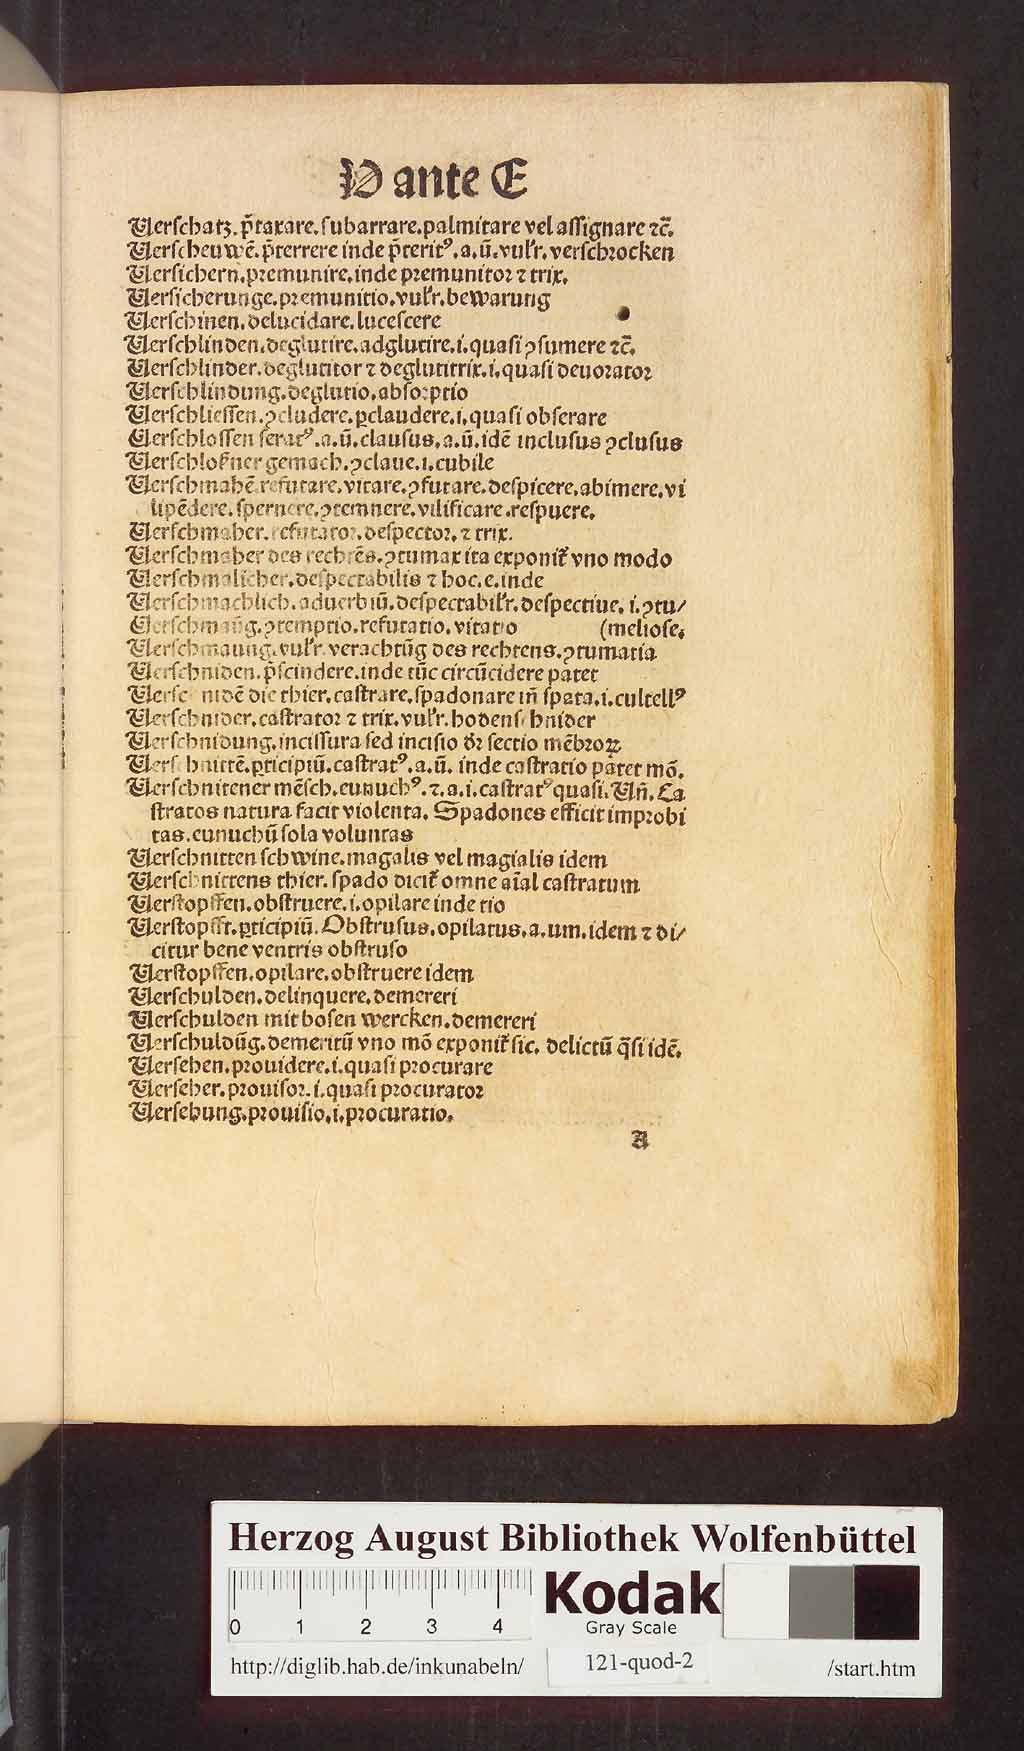 V ante E
Verſchatz. p̄taxare. ſubarrare. palmitare vel aſſignare ⁊c̄.
Verſcheuwē. p̄terrere inde p̄terit⁹. a. ū. vulr̄. verſchrocken
Verſichern. premunire. inde premunitor ⁊ trix.
Verſicherunge. premunitio. vulr̄. bewarung
Verſchinen. delucidare. luceſcere
Verſchlinden. deglutire. adglutire. i. quaſi ꝯſumere ⁊c̄.
Verſchlinder. deglutitor ⁊ deglutitrix. i. quaſi deuorator
Verſchlindung. deglutio. abſorptio
Verſchlieſſen. ꝯcludere. ꝑclaudere. i. quaſi obſerare
Verſchloſſen ſerat⁹. a. ū. clauſus. a. ū. idē incluſus ꝯcluſus
Verſchloſſner gemach. ꝯclaue. i. cubile
Verſchmahē. refutare. vitare. ꝯfutare. deſpicere. abimere. vi
lipēdere. ſpernere. ꝯtemnere. vilificare. reſpuere.
Verſchmaher. refutator. deſpector. ⁊ trix.
Verſchmaher des rechtēs. ꝯtumax ita exponit̄ vno modo
Verſchmalicher. deſpectabilis ⁊ hoc. e. inde
Verſchmachlich. aduerbiū. deſpectabilr̄. deſpectiue. i. ꝯtu/
Verſchmaūg. ꝯtemptio. refutatio. vitatio (melioſe.
Verſchmaung. vulr̄. verachtūg des rechtens. ꝯtumatia
Verſchniden. p̄ſcindere. inde tūc circūcidere patet
Verſchnidē die thier. caſtrare. ſpadonare in̄ ſpata. i. cultell⁹
Verſchnider. caſtrator ⁊ trix. vulr̄. hodenſchnider
Verſchnidung. inciſſura ſed inciſio dr̄ ſectio mēbroꝝ
Verſchnittē. ꝑticipiū. caſtrat⁹. a. ū. inde caſtratio patet mō.
Verſchnitener mēſch. eunuch⁹. ⁊. a. i. caſtrat⁹ quaſi. Vn̄. Ca
ſtratos natura facit violenta. Spadones efficit improbi
tas. eunuchū ſola voluntas
Verſchnitten ſchwine. magalis vel magialis idem
Verſchnittens thier. ſpado dicit̄ omne aīal caſtratum
Verſtopffen. obſtruere. i. opilare inde tio
Verſtopfft. ꝑticipiū. Obſtruſus. opilatus. a. um. idem ⁊ di/
citur bene ventris obſtruſo
Verſtopffen. opilare. obſtruere idem
Verſchulden. delinquere. demereri
Verſchulden mit boſen wercken. demereri
Verſchuldūg. demeritū vno mō exponit̄ ſic. delictū q̄ſi idē.
Verſehen. prouidere. i. quaſi procurare
Verſeher. prouiſor. i. quaſi procurator
Verſehung. prouiſio. i. procuratio.
A
Herzog August Bibliothek Wolfenbüttel
0 1 2 3 4
Kodak
Gray Scale
http://diglib.hab.de/inkunabeln/ 121-quod-2 /start.htm